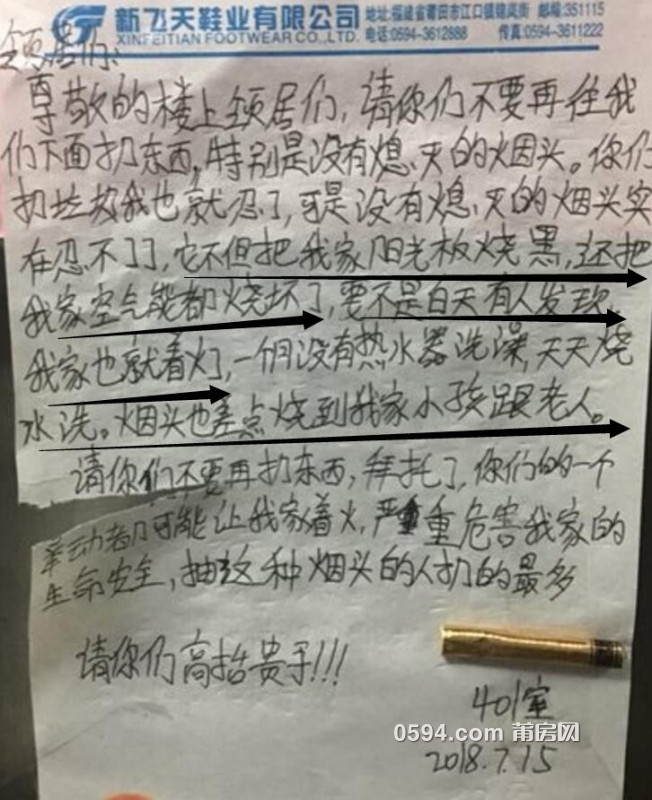 新飞天鞋业有限公司 地址:福建省莆田市江口镇锦凤街 邮编:351115
XINFEITIAN FOOTWEAR CO.,LTD. 电话:0594-3612888 传真:0594-3611222
领居们:
尊敬的楼上领居们,请你们不要再往我
们下面扔东西,特别是没有熄灭的烟头。你们
扔垃圾我也就忍了,可是没有熄灭的烟头实
在忍不了了,它不但把我家阳光板烧黑,还把
我家空气能都烧坏了,要不是白天有人发现,
我家也就着灯,一个月没有热水器洗澡,天天烧
水洗。烟头也差点烧到我家小孩跟老人。
请你们不要再扔东西,拜托了,你们的一个
举动都可能让我家着火,严重危害我家的
生命安全,抽这种烟头的人扔的最多
请你们高抬贵手!!!
401室
0594.com 莆房网
2018.7.15